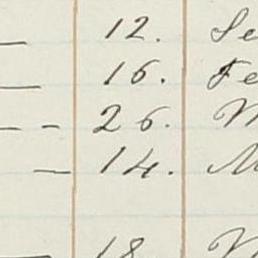 — 12. Se
— 16. Fe
— - 26. M
— 14. M
— 18.